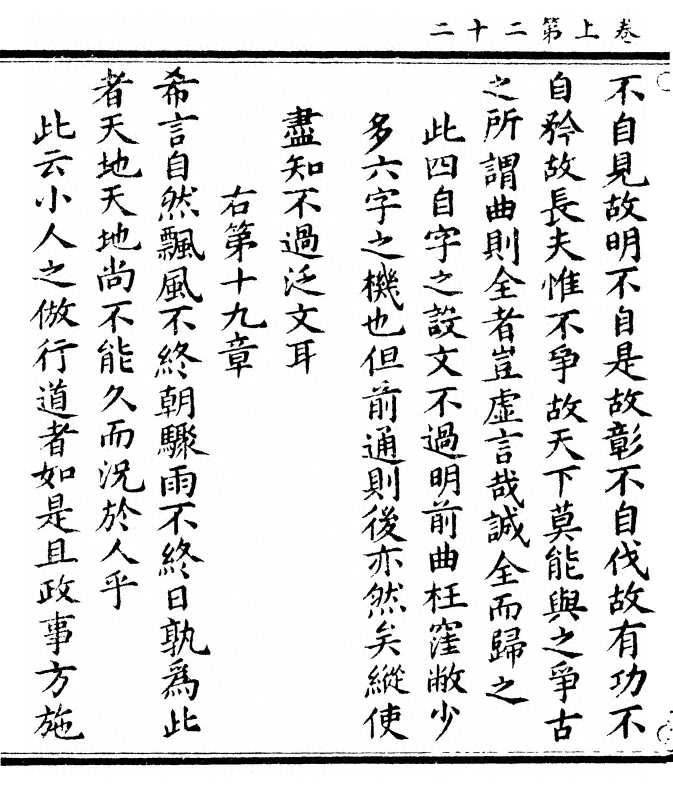 卷上第二十二
不自見故明不自是故彰不自伐故有功不
自矜故長夫惟不爭故天下莫能與之爭古
之所謂曲則全者豈虛言哉誠全而歸之
此四自字之設文不過明前曲枉窪敝少
多六字之機也但前通則後亦然矣縱使
盡知不過泛文耳
右第十九章
希言自然飄風不終朝驟雨不終日孰爲此
者天地天地尚不能久而況於人乎
此云小人之倣行道者如是且政事方施